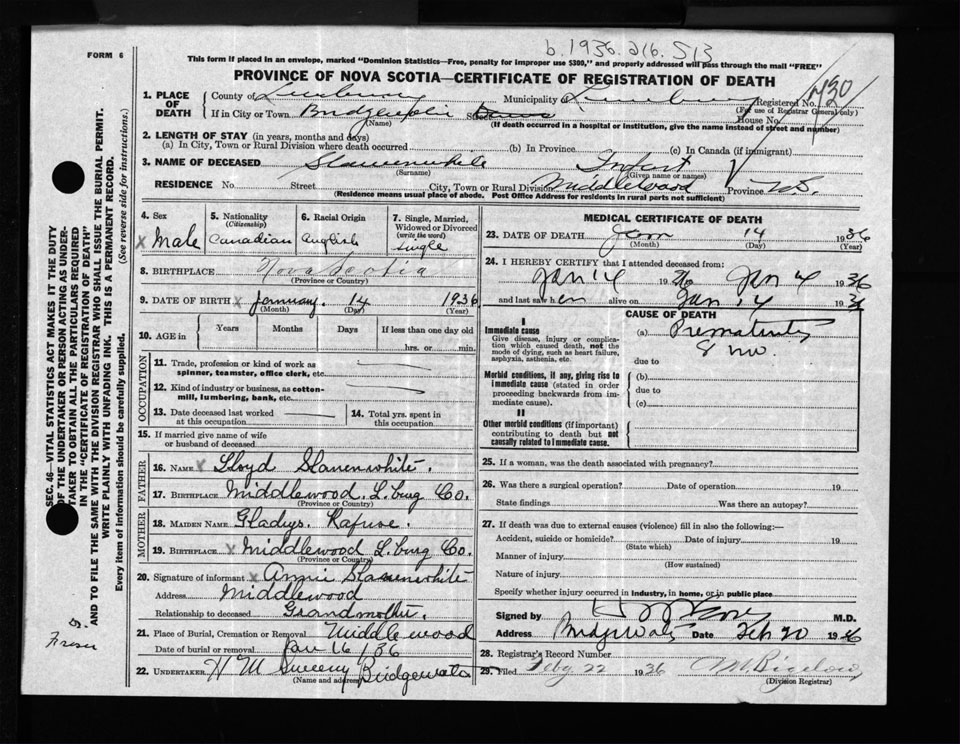 b. 1936. 216. 513
FORM 6
This form if placed in an envelope, marked "Dominion Statistics—Free, penalty for improper use $300," and properly addressed will pass through the mail "FREE"
PROVINCE OF NOVA SCOTIA—CERTIFICATE OF REGISTRATION OF DEATH
1. PLACE OF DEATH County of Lunenburg Municipality Lunenburg Registered No.
(For use of Registrar General only)
If in City or Town (Name) Street House No.
(If death occurred in a hospital or institution, give the name instead of street and number)
2. LENGTH OF STAY (in years, months and days)
(a) In City, Town or Rural Division where death occurred (b) In Province (c) In Canada (if immigrant)
3. NAME OF DECEASED Slauenwhite Infant
(Surname) (Given name or names)
RESIDENCE No. Street City, Town or Rural Division Middlewood Province N.S.
(Residence means usual place of abode. Post Office Address for residents in rural parts not sufficient)
4. Sex Male
5. Nationality (Citizenship) Canadian
6. Racial Origin English
7. Single, Married, Widowed or Divorced (write the word) Single
8. BIRTHPLACE Nova Scotia
(Province or Country)
9. DATE OF BIRTH x January 14 1936
(Month) (Day) (Year)
10. AGE in Years Months Days If less than one day old
hrs. or min.
OCCUPATION
11. Trade, profession or kind of work as spinner, teamster, office clerk, etc.
12. Kind of industry or business, as cotton-mill, lumbering, bank, etc.
13. Date deceased last worked at this occupation
14. Total yrs. spent in this occupation
15. If married give name of wife or husband of deceased
FATHER
16. NAME x Lloyd Slauenwhite.
17. BIRTHPLACE Middlewood. L.burg Co.
(Province or Country)
MOTHER
18. MAIDEN NAME Gladys. Rafuse.
19. BIRTHPLACE x Middlewood L.burg Co.
(Province or Country)
20. Signature of informant x Annie Slauenwhite
Address Middlewood
Relationship to deceased Grandmother.
21. Place of Burial, Cremation or Removal Middlewood
Date of burial or removal Jan 16/36
22. UNDERTAKER H M Sweeny Bridgewater
(Name and address)
MEDICAL CERTIFICATE OF DEATH
23. DATE OF DEATH Jan 14 1936
(Month) (Day) (Year)
24. I HEREBY CERTIFY that I attended deceased from:
Jan 14 19 to Jan 14 1936
and last saw h alive on Jan 14 19
CAUSE OF DEATH
I
Immediate cause
Give disease, injury or complication which caused death, not the mode of dying, such as heart failure, asphyxia, asthenia, etc.
(a) Prematurity
8 mo.
due to
Morbid conditions, if any, giving rise to immediate cause (stated in order proceeding backwards from immediate cause).
(b)
due to
(c)
II
Other morbid conditions (if important) contributing to death but not causally related to immediate cause.
25. If a woman, was the death associated with pregnancy?
26. Was there a surgical operation? Date of operation 19
State findings Was there an autopsy?
27. If death was due to external causes (violence) fill in also the following:—
Accident, suicide or homicide? Date of injury 19
(State which)
Manner of injury
(How sustained)
Nature of injury
Specify whether injury occurred in industry, in home, or in public place
Signed by M.D.
Address Bridgewater Date Feb 20 1936
28. Registrar's Record Number
29. Filed Feby 22 1936
(Division Registrar)
SEC. 46—VITAL STATISTICS ACT MAKES IT THE DUTY
OF THE UNDERTAKER OR PERSON ACTING AS UNDERTAKER TO OBTAIN ALL THE PARTICULARS REQUIRED
IN THE "CERTIFICATE OF REGISTRATION OF DEATH"
AND TO FILE THE SAME WITH THE DIVISION REGISTRAR WHO SHALL ISSUE THE BURIAL PERMIT.
WRITE PLAINLY WITH UNFADING INK. THIS IS A PERMANENT RECORD.
Every item of information should be carefully supplied. (See reverse side for instructions.)